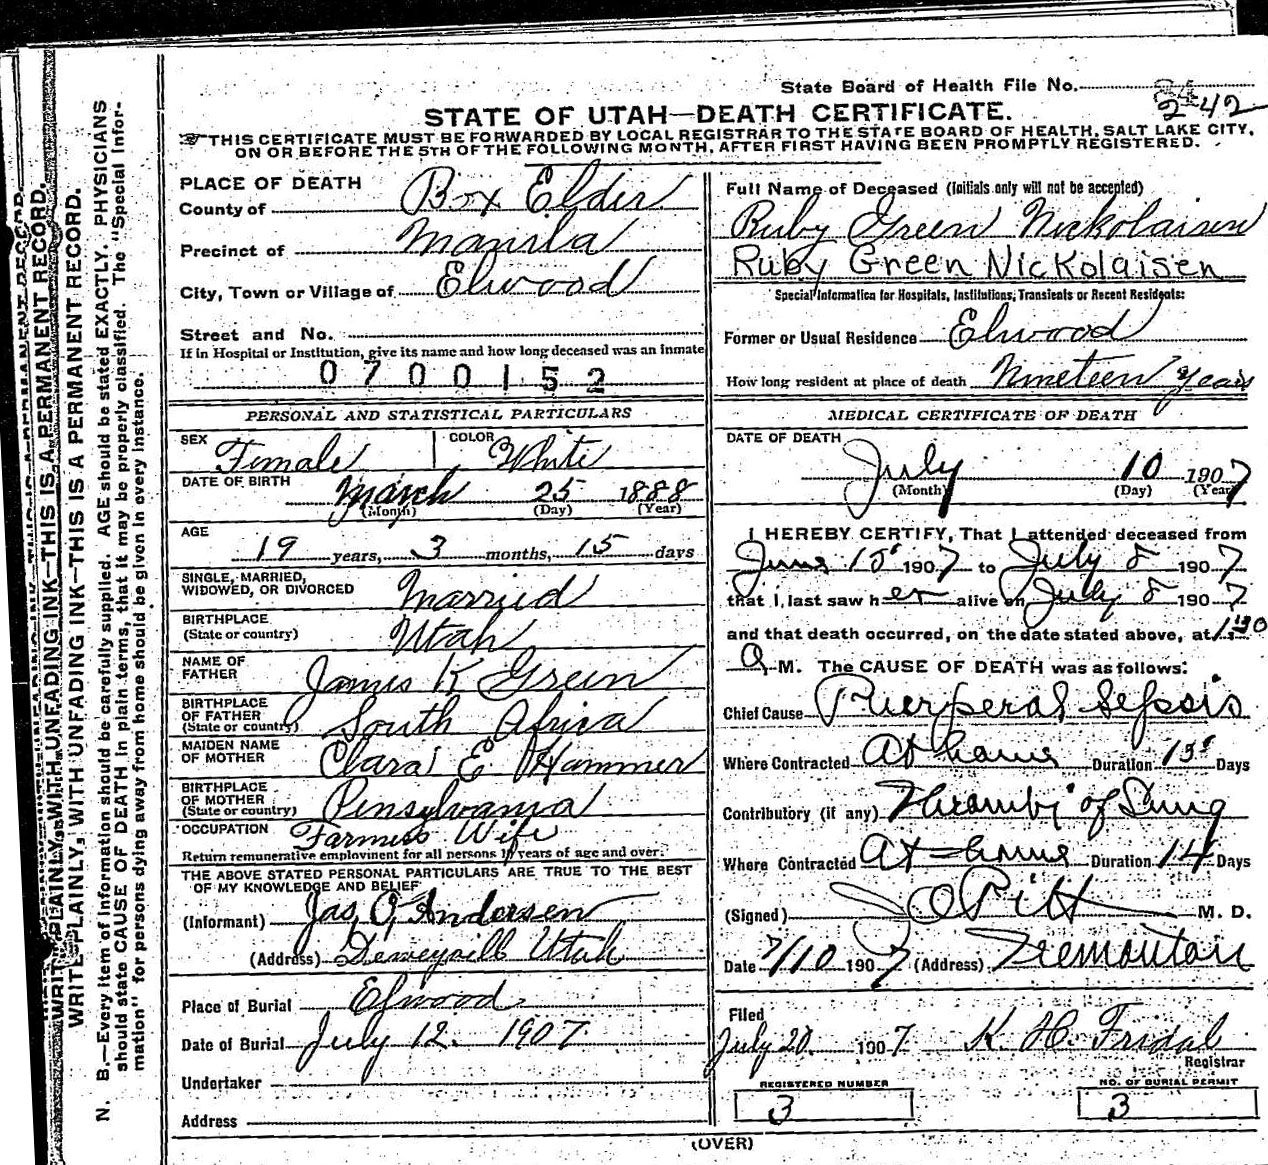 State Board of Health File No.
242
STATE OF UTAH—DEATH CERTIFICATE.
THIS CERTIFICATE MUST BE FORWARDED BY LOCAL REGISTRAR TO THE STATE BOARD OF HEALTH, SALT LAKE CITY,
ON OR BEFORE THE 5TH OF THE FOLLOWING MONTH, AFTER FIRST HAVING BEEN PROMPTLY REGISTERED.
PLACE OF DEATH
County of Box Elder
Precinct of Manila
City, Town or Village of Elwood
Street and No.
If in Hospital or Institution, give its name and how long deceased was an inmate
0700152
PERSONAL AND STATISTICAL PARTICULARS
SEX Female COLOR White
DATE OF BIRTH March 25 1888
(Month) (Day) (Year)
AGE 19 years, 3 months, 15 days
SINGLE, MARRIED,
WIDOWED, OR DIVORCED Married
BIRTHPLACE
(State or country) Utah
NAME OF
FATHER James K Green
BIRTHPLACE
OF FATHER
(State or country) South Africa
MAIDEN NAME
OF MOTHER Clara E Hammer
BIRTHPLACE
OF MOTHER
(State or country) Pensylvania
OCCUPATION Farmers Wife
Return remunerative employment for all persons 10 years of age and over.
THE ABOVE STATED PERSONAL PARTICULARS ARE TRUE TO THE BEST
OF MY KNOWLEDGE AND BELIEF
(Informant) Jas. O Andersen
(Address) Deweyvill Utah
Place of Burial Elwood
Date of Burial July 12. 1907
Undertaker
Address
Full Name of Deceased (Initials only will not be accepted)
Ruby Green Nickolaisen
Ruby Green Nickolaisen
Special Information for Hospitals, Institutions, Transients or Recent Residents:
Former or Usual Residence Elwood
How long resident at place of death Nineteen years
MEDICAL CERTIFICATE OF DEATH
DATE OF DEATH
July 10 1907
(Month) (Day) (Year)
I HEREBY CERTIFY, That I attended deceased from
June 15 1907 to July 8 1907
that I last saw her alive on July 8 1907
and that death occurred, on the date stated above, at 1:30
A M. The CAUSE OF DEATH was as follows:
Chief Cause Puerperal Sepsis
Where Contracted At home Duration 15 Days
Contributory (if any) Thrombi of Lung
Where Contracted At home Duration 14 Days
(Signed) J O Pitt M. D.
Date 7/10 1907 (Address) Tremonton
Filed
July 20. 1907 K. H. Fridal
Registrar
REGISTERED NUMBER
3
NO. OF BURIAL PERMIT
3
(OVER)
WRITE PLAINLY, WITH UNFADING INK—THIS IS A PERMANENT RECORD.
WRITE PLAINLY, WITH UNFADING INK—THIS IS A PERMANENT RECORD.
N. B.—Every item of information should be carefully supplied. AGE should be stated EXACTLY. PHYSICIANS
should state CAUSE OF DEATH in plain terms, that it may be properly classified. The "Special Infor-
mation" for persons dying away from home should be given in every instance.